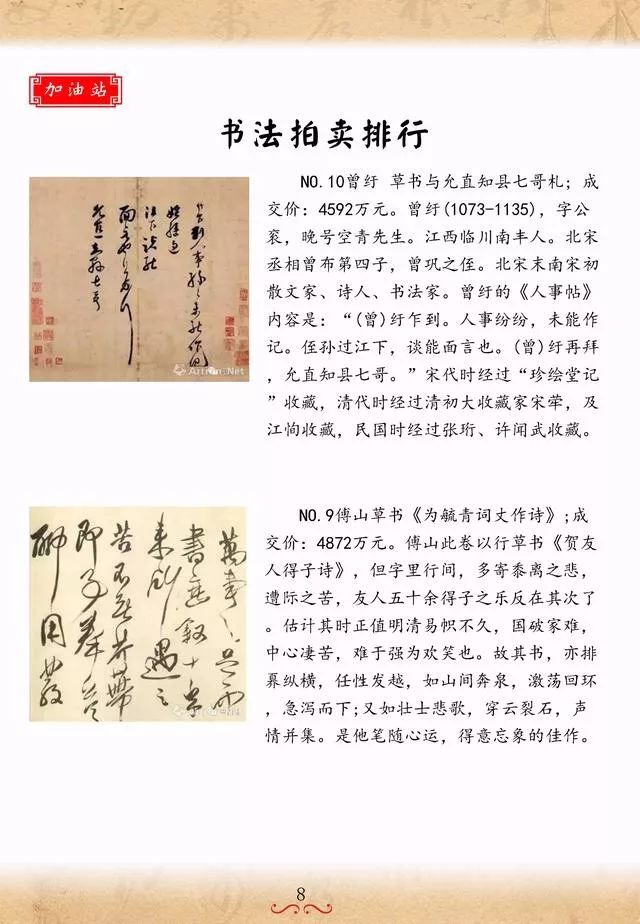 加油站
书法拍卖排行
NO.10曾纡 草书与允直知县七哥札；成
交价：4592万元。曾纡(1073-1135)，字公
衮，晚号空青先生。江西临川南丰人。北宋
丞相曾布第四子，曾巩之侄。北宋末南宋初
散文家、诗人、书法家。曾纡的《人事帖》
内容是：“(曾)纡乍到。人事纷纷，未能作
记。侄孙过江下，谈能面言也。(曾)纡再拜
，允直知县七哥。”宋代时经过“珍绘堂记
”收藏，清代时经过清初大收藏家宋荦，及
江恂收藏，民国时经过张珩、许闻武收藏。
Artron.Net
NO.9傅山草书《为毓青词丈作诗》;成
交价：4872万元。傅山此卷以行草书《贺友
人得子诗》，但字里行间，多寄黍离之悲，
遭际之苦，友人五十余得子之乐反在其次了
。估计其时正值明清易帜不久，国破家难，
中心凄苦，难于强为欢笑也。故其书，亦排
奡纵横，任性发越，如山间奔泉，激荡回环
，急泻而下;又如壮士悲歌，穿云裂石，声
情并集。是他笔随心运，得意忘象的佳作。
8